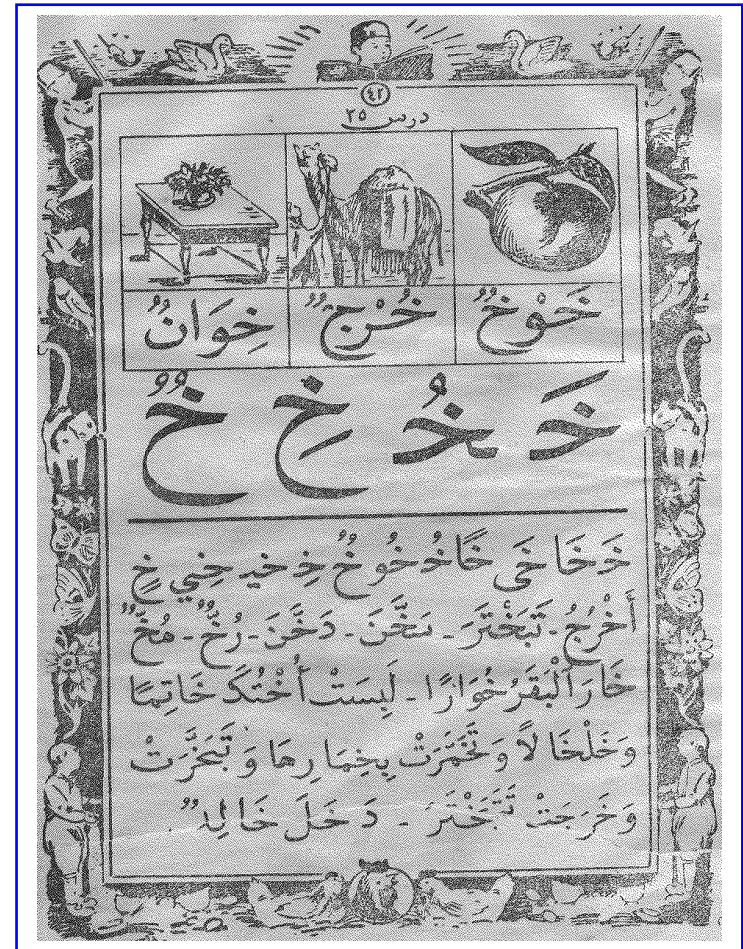 ٤٢
درس ٢٥
خَوْخٌ خُرْجٌ خِوَانٌ
خَ خُ خِ خٌ
خَ خَا خَى خًا خُ خُو خٌ خِ خيـ خِي خٍ
أَخْرُجُ ـ تَبَخْتَرَ ـ سَخَّنَ ـ دَخَّنَ ـ رُخٌّ ـ مُخٌّ
خَارَ ٱلْبَقَرُ خُوَارًا ـ لَبِسَتْ أُخْتُكَ خَاتِمًا
وَخَلْخَالًا وَتَخَمَّرَتْ بِخِمَارِهَا وَتَبَخَّرَتْ
وَخَرَجَتْ تَتَبَخْتَرَ ـ دَخَلَ خَالِدٌ.